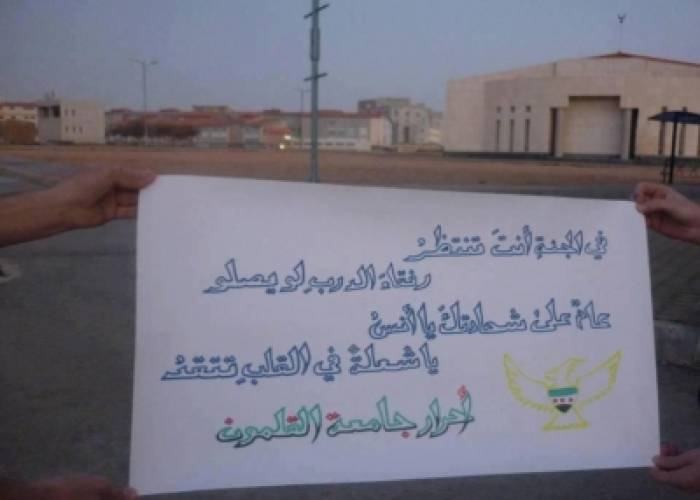 في الجنةِ أنتَ تنتظرُ
رفاقَ الدربِ لو يصلو
عامٌ على شهادتكَ يا أنسُ
يا شعلةً في القلبِ تتقدُ
أحرار جامعة القلمون